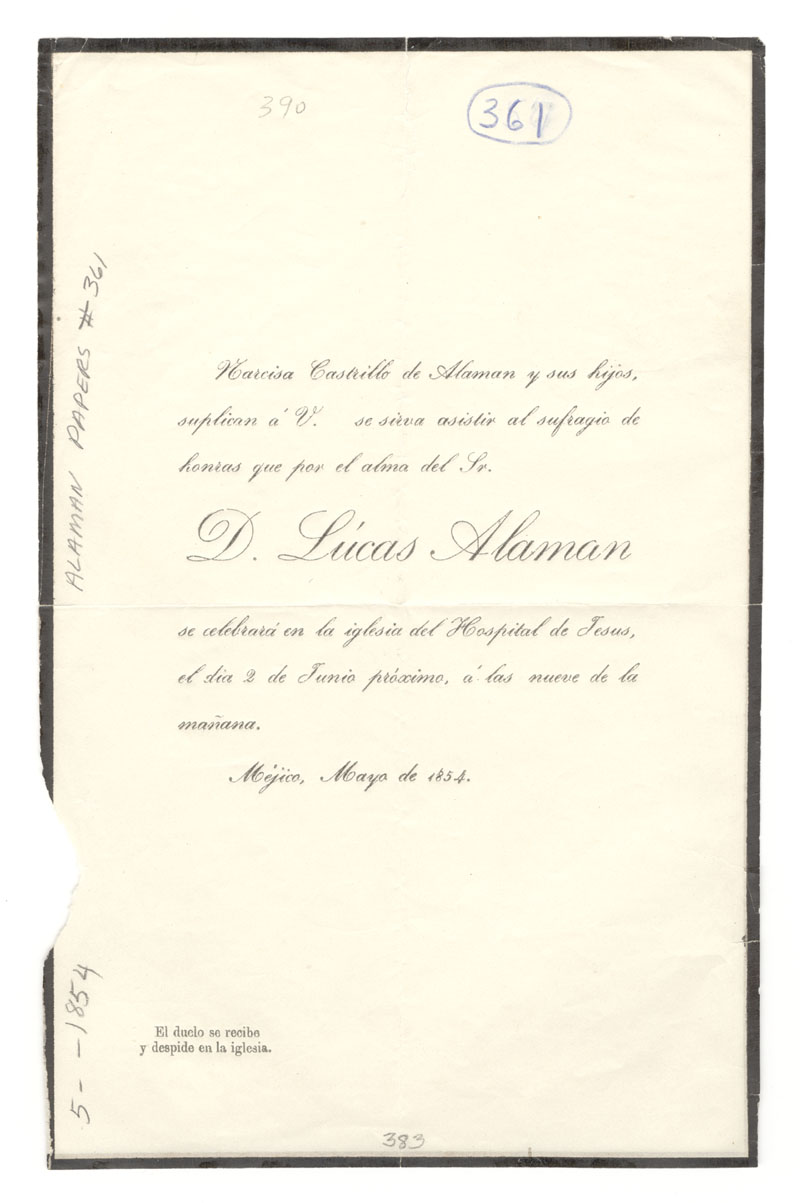 390
361
ALAMAN PAPERS # 361
Narcisa Castrillo de Alaman y sus hijos,
suplican á V. se sirva asistir al sufragio de
honras que por el alma del Sr.
D. Lúcas Alaman
se celebrará en la iglesia del Hospital de Jesus,
el dia 2 de Junio próximo, á las nueve de la
mañana.
Méjico, Mayo de 1854.
5 - - 1854
El duelo se recibe
y despide en la iglesia.
383